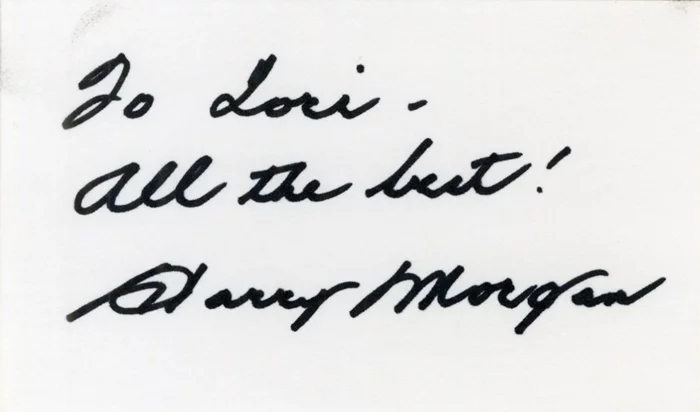 To Lori -
All the best!
Harry Morgan